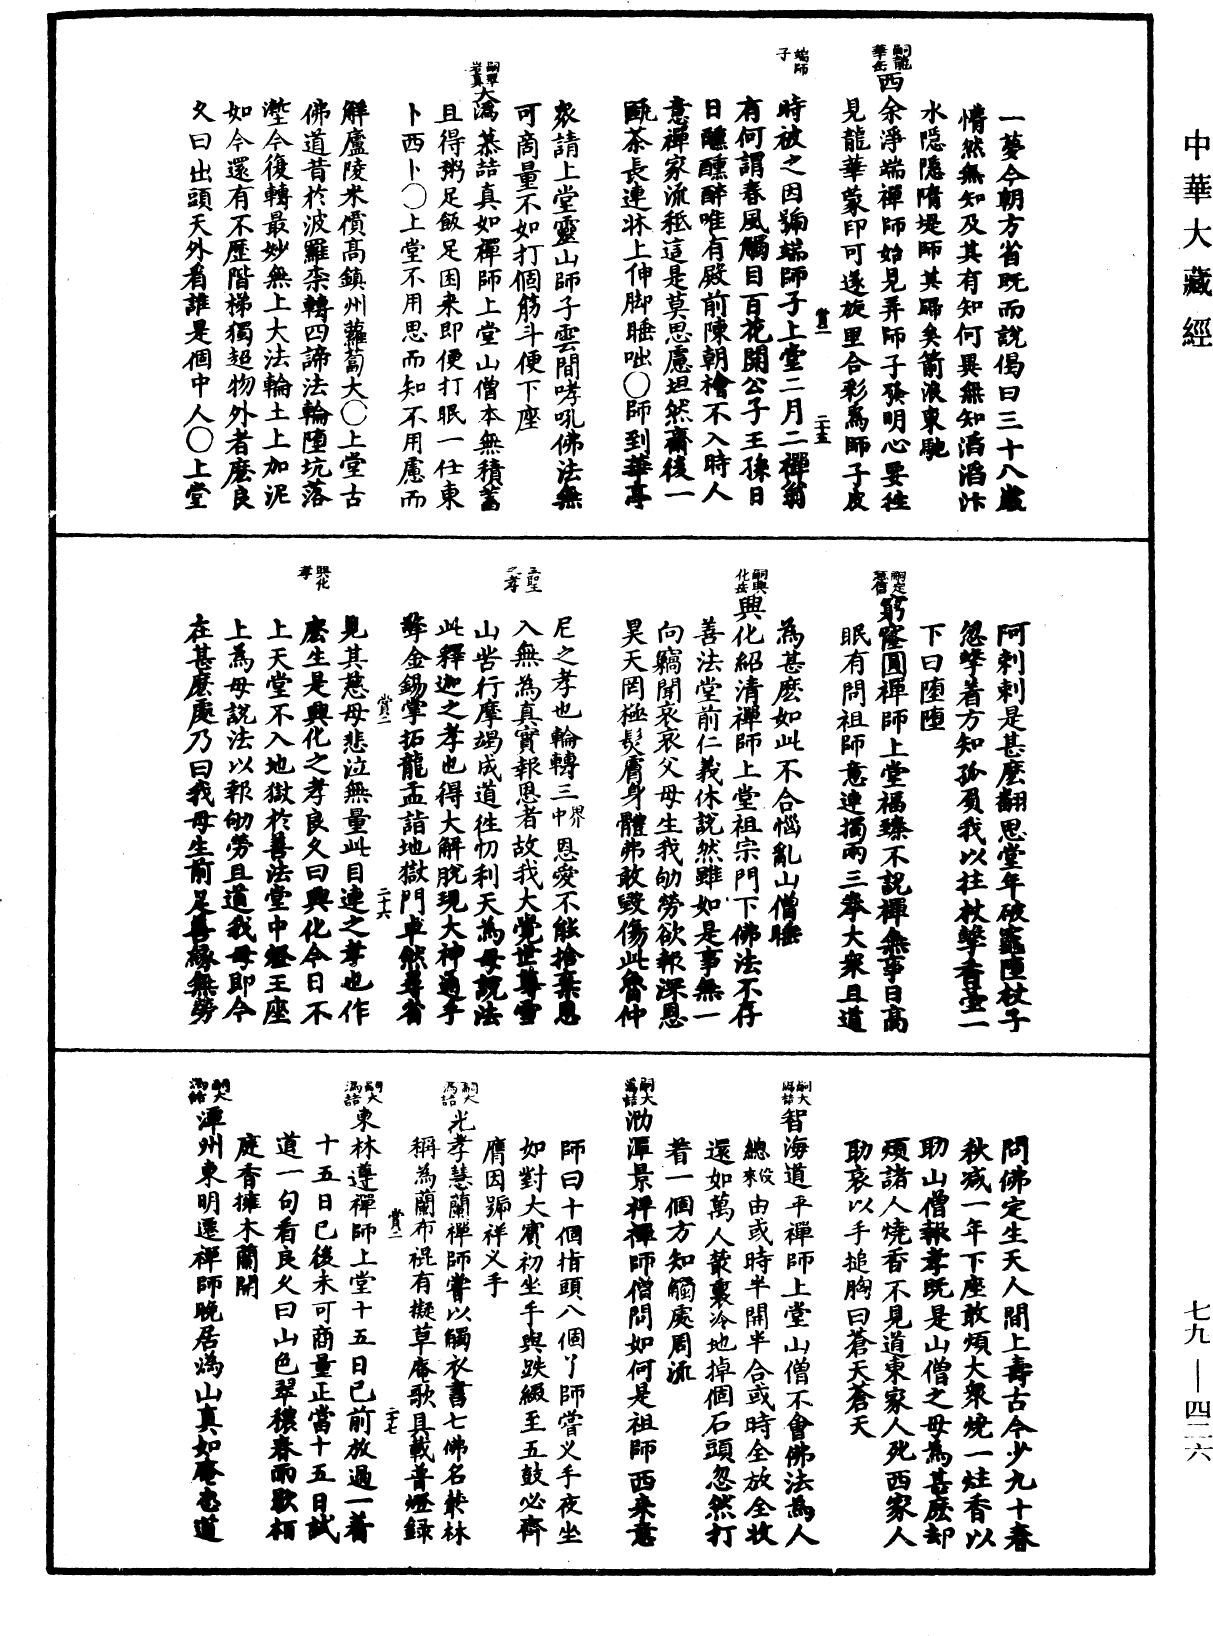 中華大藏經
一夢今朝方省既而說偈曰三十八歲
懵然無知及其有知何異無知滔滔汴
水隱隱隋堤師其歸矣箭浪東馳
嗣龍華岳
西余淨端禪師始見弄師子發明心要往
見龍華蒙印可遂旋里合彩為師子皮
端師子
時被之因號端師子上堂二月二禪翁
有何謂春風觸目百花開公子王孫日
日醺醺醉唯有殿前陳朝檜不入時人
意禪家流秪這是莫思慮坦然齋後一
甌茶長連牀上伸脚睡咄〇師到華亭
衆請上堂靈山師子雲間哮吼佛法無
可商量不如打個筋斗便下座
嗣翠岩真
大溈慕喆真如禪師上堂山僧本無積蓄
且得粥足飯足困來即便打眠一任東
卜西卜〇上堂不用思而知不用慮而
解廬陵米價高鎮州蘿蔔大〇上堂古
佛道昔於波羅柰轉四諦法輪墮坑落
壍今復轉最妙無上大法輪土上加泥
如今還有不歷階梯獨超物外者麽良
久曰出頭天外看誰是個中人〇上堂
賞二
二十五
阿剌剌是甚麽翻思當年破竈墮杖子
忽擊着方知孤負我以拄杖擊香臺一
下曰墮墮
嗣定慧信
窮窿圓禪師上堂福臻不說禪無事日高
眠有問祖師意連擉兩三拳大衆且道
為甚麽如此不合惱亂山僧睡
嗣興化岳
興化紹清禪師上堂祖宗門下佛法不存
善法堂前仁義休說然雖如是事無一
向竊聞哀哀父母生我劬勞欲報深恩
昊天罔極髮膚身體弗敢毀傷此魯仲
尼之孝也輪轉三界中恩愛不能捨棄恩
三聖之孝
入無為真實報恩者故我大覺世尊雪
山苦行摩竭成道徃忉利天為母說法
此釋迦之孝也得大解脫現大神通手
擎金錫掌拓龍盂詣地獄門卓然尋省
見其慈母悲泣無量此目連之孝也作
興化孝
麽生是興化之孝良久曰興化今日不
上天堂不入地獄於善法堂中登王座
上為母說法以報劬勞且道我母即今
在甚麽處乃曰我母生前足善緣無勞
賞二
二十六
問佛定生天人間上壽古今少九十春
秋减一年下座敢煩大衆燒一炷香以
助山僧報孝既是山僧之母為甚麽却
煩諸人燒香不見道東家人死西家人
助哀以手搥胸曰蒼天蒼天
嗣大溈喆
智海道平禪師上堂山僧不會佛法為人
總没來由或時半開半合或時全放全收
還如萬人叢裏冷地掉個石頭忽然打
着一個方知觸處周流
嗣大溈喆
泐潭景祥禪師僧問如何是祖師西來意
師曰十個指頭八個丫師嘗叉手夜坐
如對大賓初坐手與趺綴至五鼓必齊
膺因號祥叉手
嗣大溈喆
光孝慧蘭禪師嘗以觸衣書七佛名叢林
稱為蘭布裩有擬草庵歌具載普燈録
嗣大溈喆
東林遵禪師上堂十五日已前放過一着
十五日已後未可商量正當十五日試
道一句看良久曰山色翠穠春雨歇栢
庭香擁木蘭開
嗣大溈喆
潭州東明遷禪師晚居溈山真如庵忠道
賞二
二十七
七九—四二六